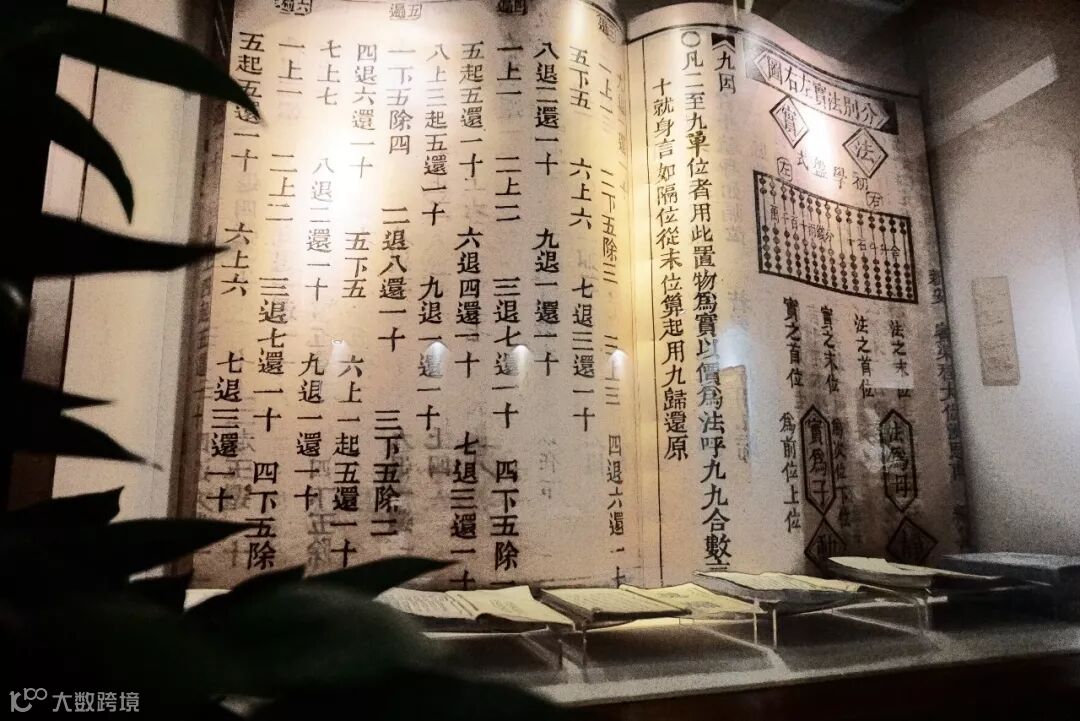 分別法實左右圖
法 實
初學盤式
右 左
法之末位
法之首位
實之末位
實之首位
法爲母
實爲子
爲前位上位
動
九因
○凡二至九單位者用此置物爲實以價爲法呼九九合數言
十就身言如隔位從末位算起用九歸還原
一上一 二下五除三 三上三 四退六還一十
五下五 六上六 七退三還一十
八退二還一十 九退一還一十
一上一 二上二 三退七還一十 四下五除一
五起五還一十 六退四還一十 七退三還一十
八上三起五還一十 九退一還一十
一下五除四 二退八還一十 三下五除二
四退六還一十 五下五 六上一起五還一十
七上七 八退二還一十 九退一還一十
一上一 二上二 三退七還一十 四下五除
五起五還一十 六上六 七退三還一十
大数跨境